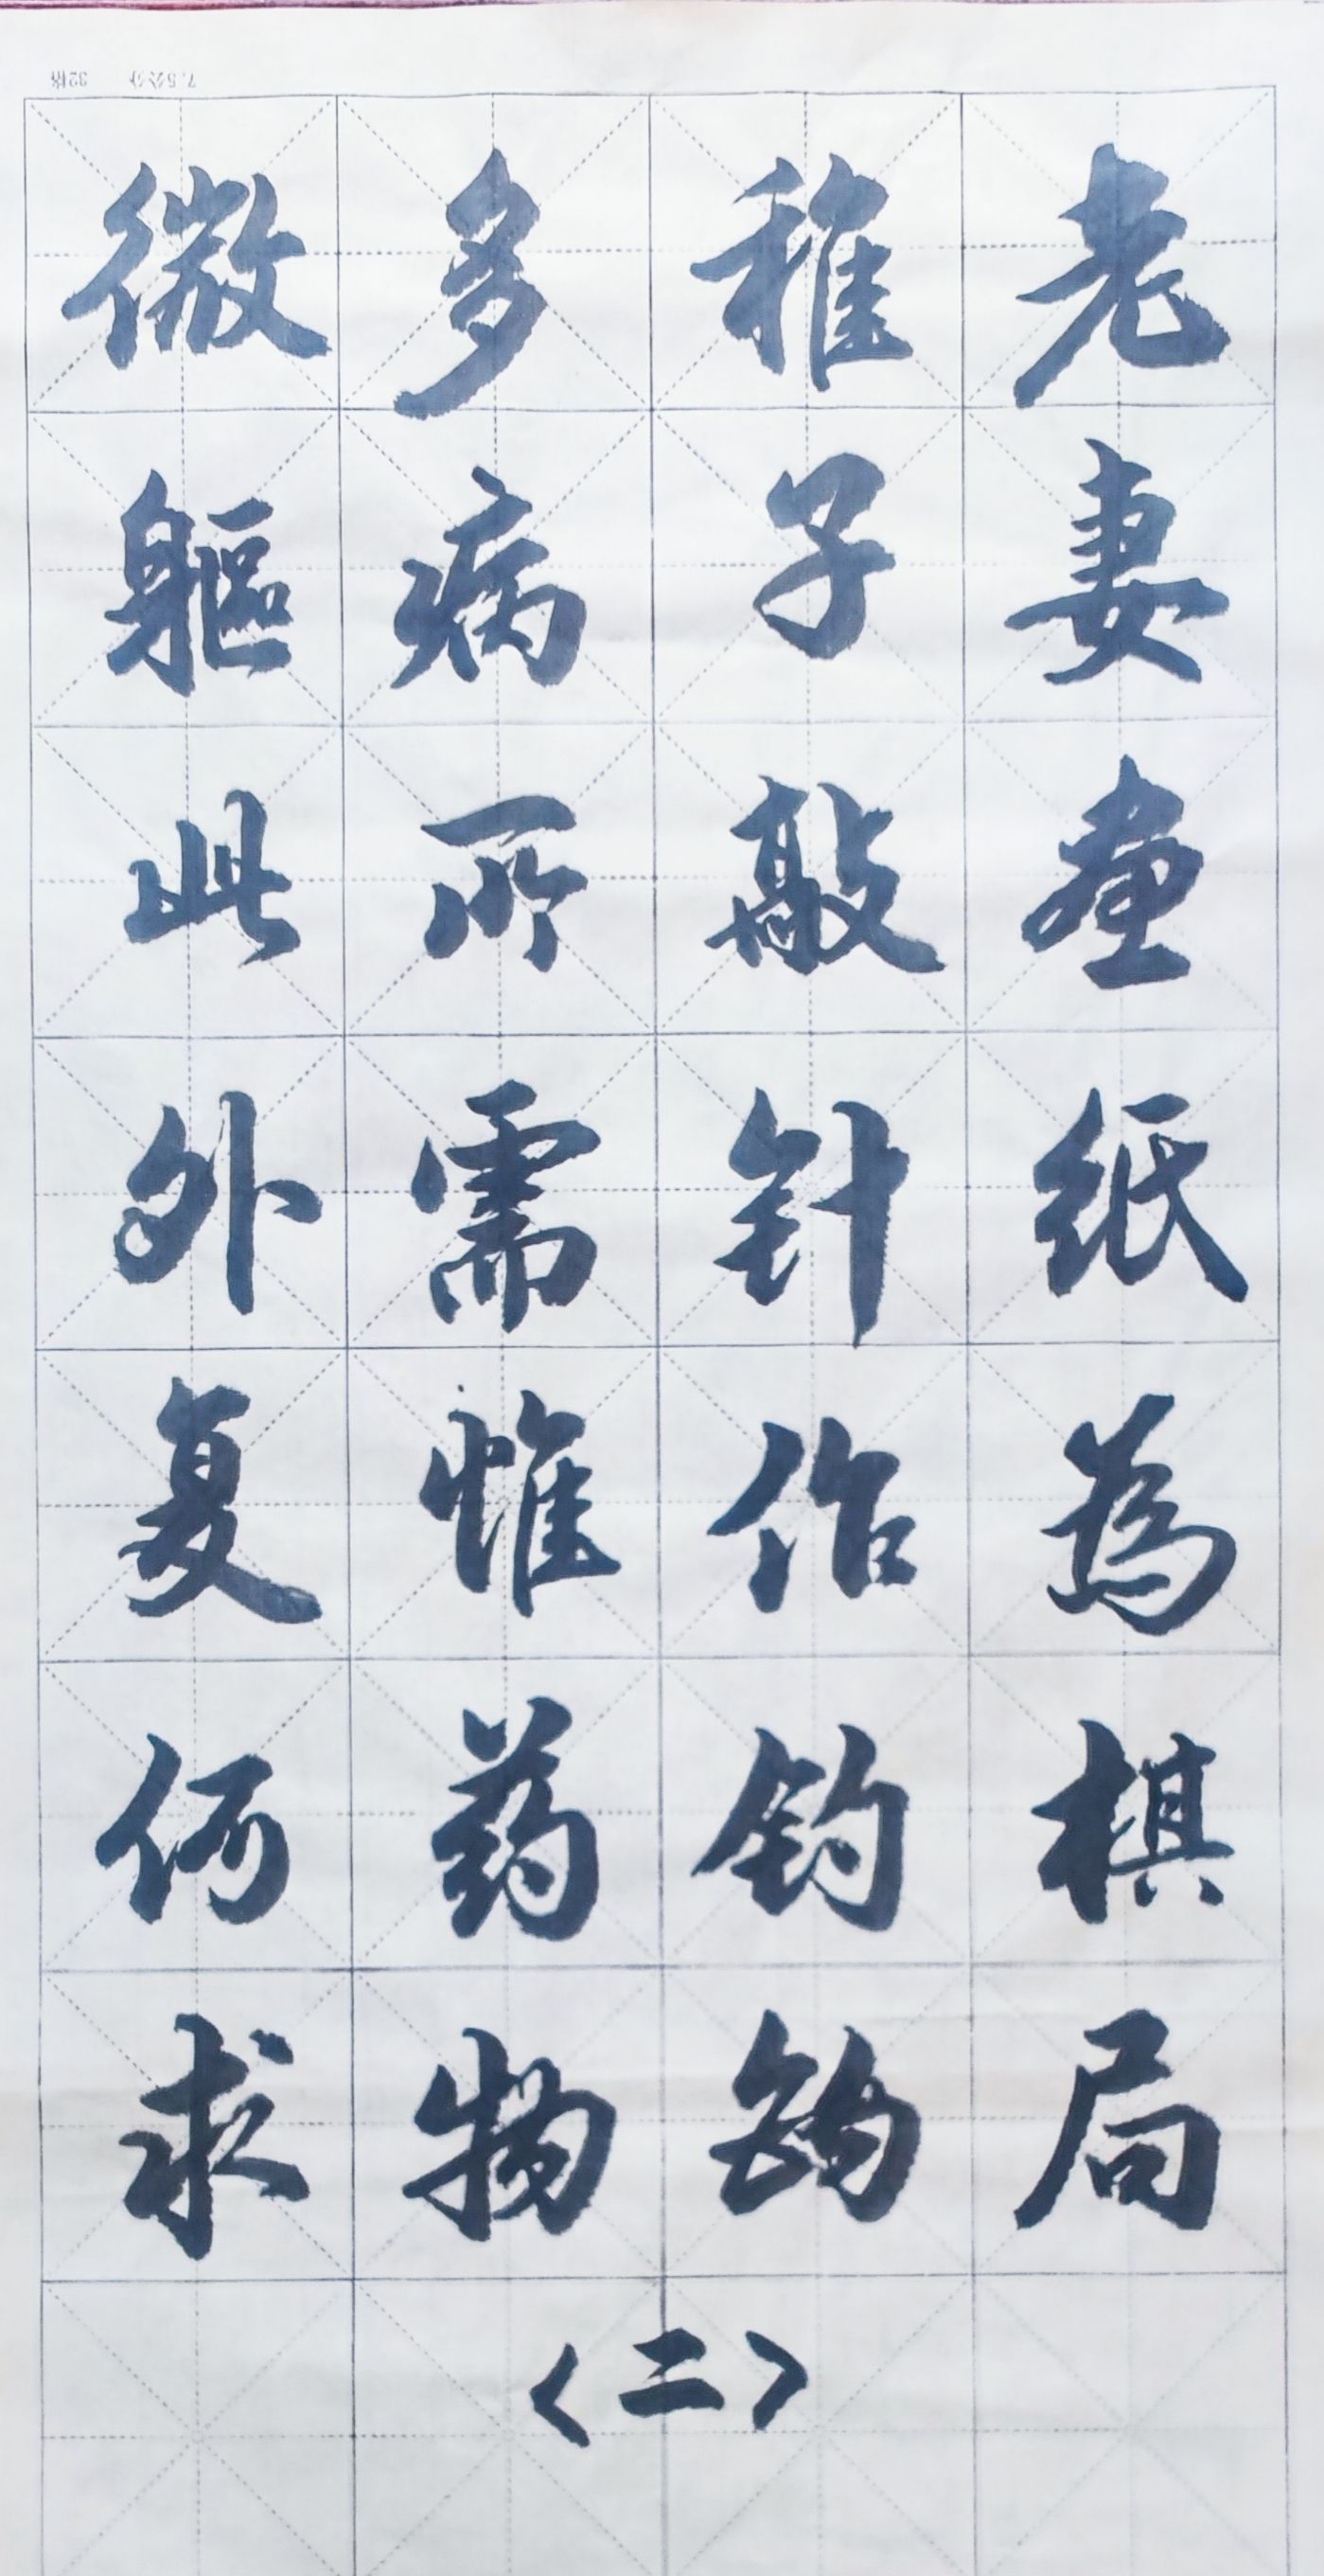 老妻畫纸為棋局
稚子敲针作钓鈎
多病所需惟药物
微軀此外复何求
〈二〉
7.5公分 32格